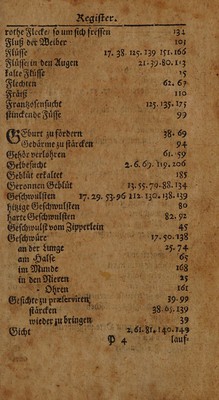 Register.
rothe Flecke/ so um sich fressen 132
Fluß der Weiber 101
Flüsse 17. 38. 125. 139 151. 166
Flüsse in den Augen 21-39-80. 113
kalte Flüsse 15
Flechten 62. 67
Fräisl 110
Frantzosensucht 125. 135. 175
stinckende Füsse 99
GEburt zu fördern 38. 69
Gebärme zu stärcken 94
Gehör verlohren 61. 59
Gelbesucht 2. 6. 69. 119. 206
Geblüt erkaltet 185
Geronnen Geblüt 13. 55. 79. 88. 134
Geschwulsten 17. 29. 53. 96 112. 130. 138. 139
hitzige Geschwulsten 80
harte Geschwulsten 82. 92
Geschwulst vom Zipperlein 45
Geschwür 17. 50. 138
an der Lunge 25. 74
am Halse 65
im Munde 168
in den Nieren 25
- Ohren 161
Gesichte zu præserviren 39-99
stärcken 38. 63. 139
wieder zu bringen 39
Gicht 2. 61. 81. 140. 149
P 4 lauf-